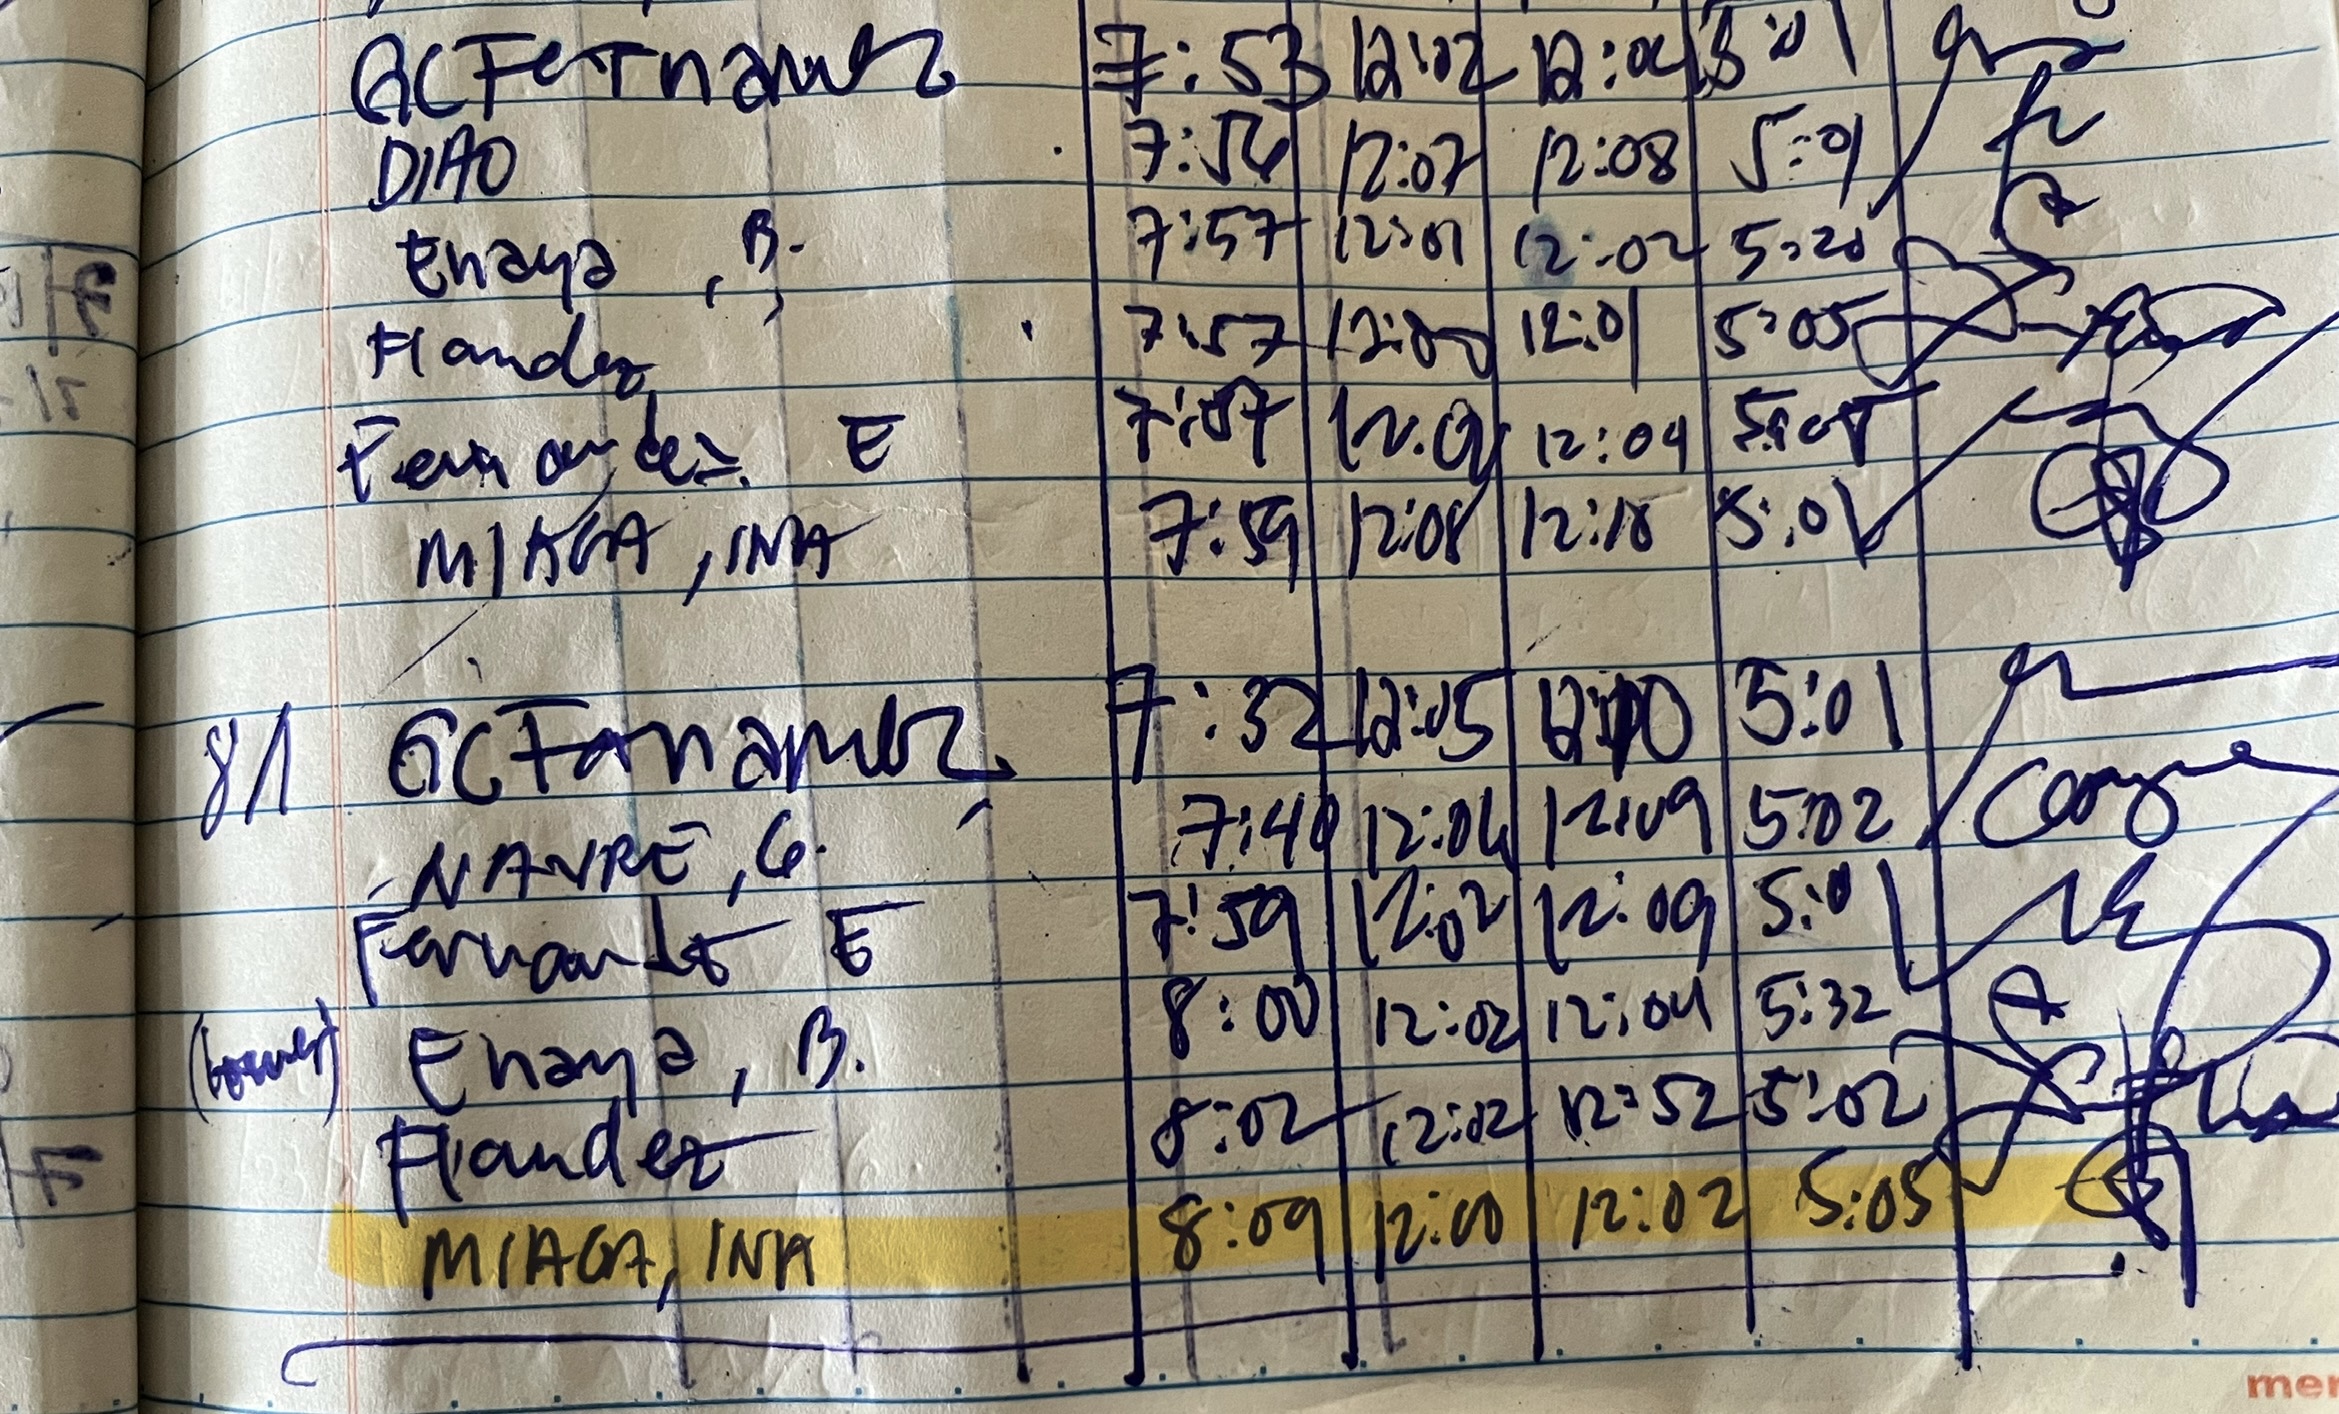 GCFernandez 7:53 12:02 12:04 5:01
DIAO 7:56 12:07 12:08 5:01
Enaya, B. 7:57 12:01 12:02 5:20
Flandez 7:57 12:00 12:01 5:05
Fernandez E 7:57 12:01 12:04 5:05
MIAGA, INA 7:59 12:08 12:10 5:01
8/1 GCFernandez 7:32 12:05 12:10 5:01
NAVRE, G. 7:40 12:06 12:09 5:02
Fernandez E 7:59 12:02 12:09 5:01
Enaya, B. 8:00 12:02 12:04 5:32
Flandez 8:02 12:02 12:52 5:02
MIAGA, INA 8:09 12:00 12:02 5:05